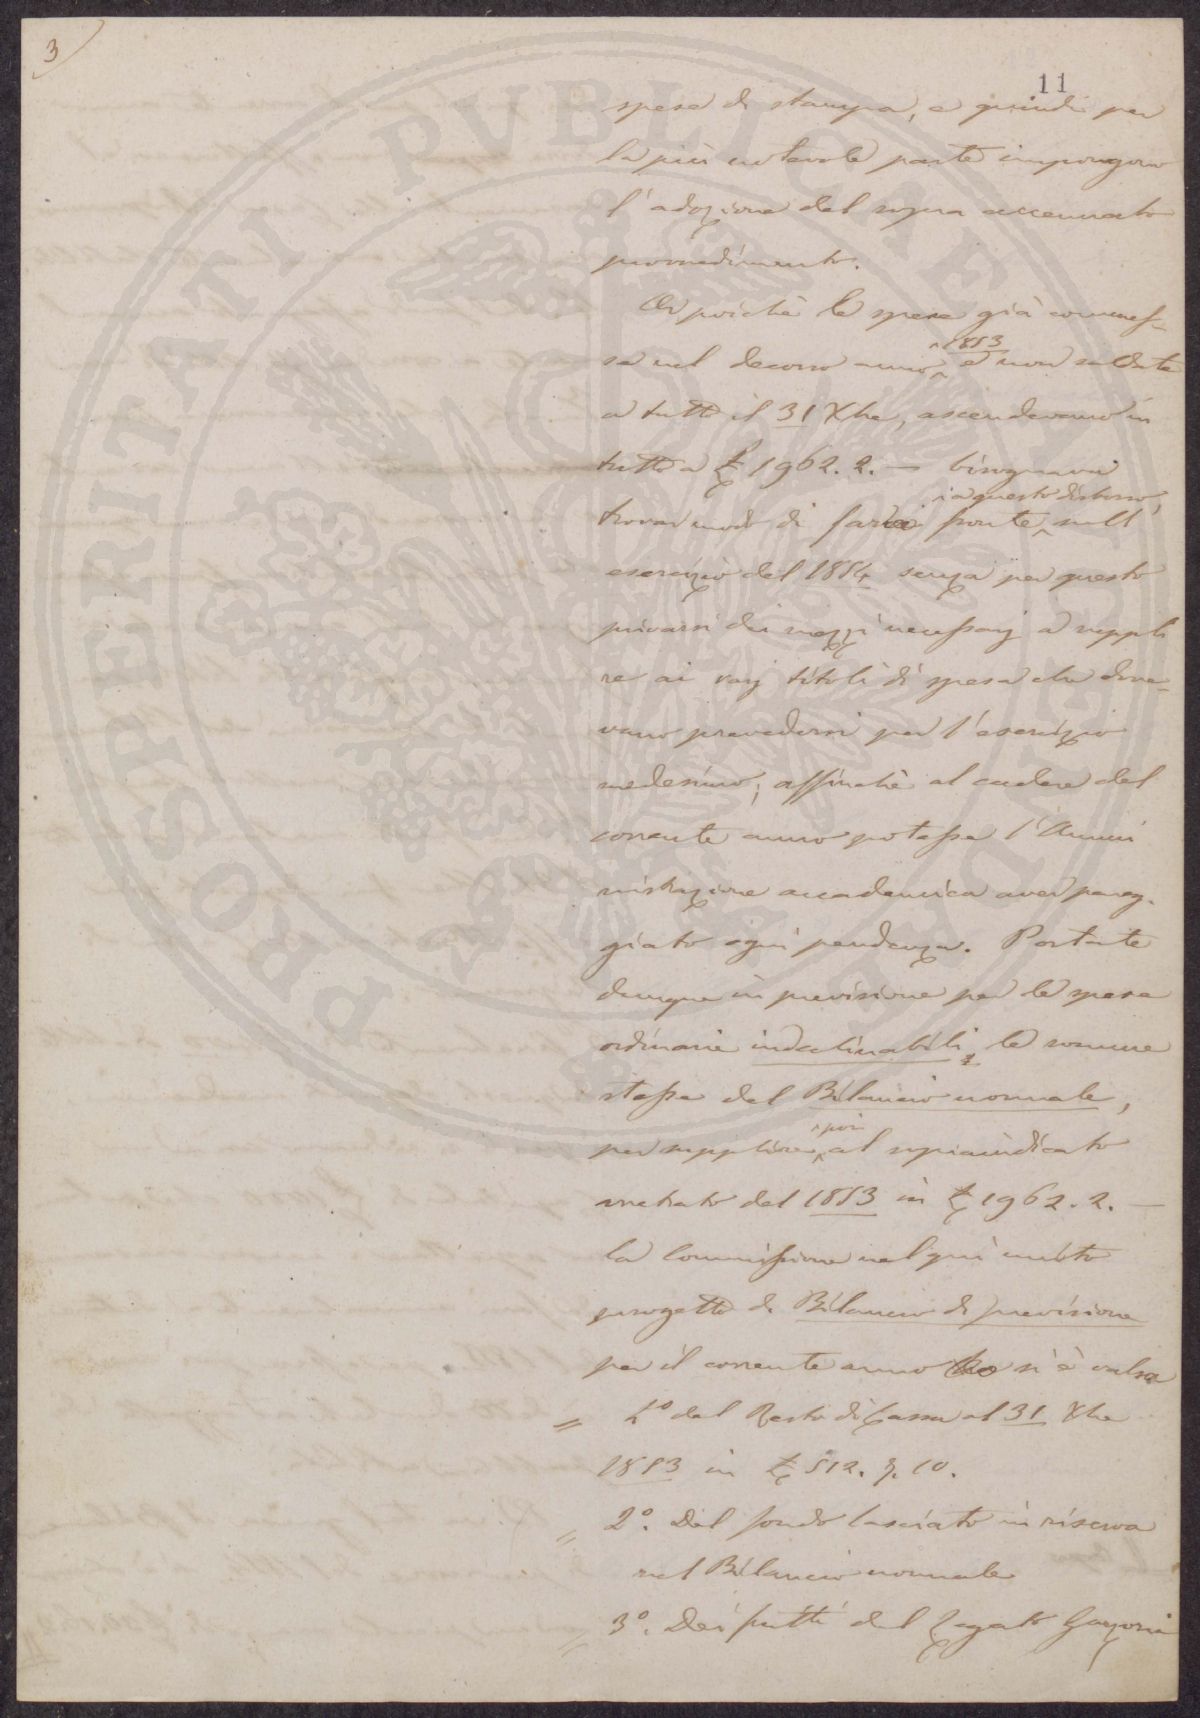 3)
11
spese di stampa, e quindi per
la più notevole parte impongono
l'adozione del sopra accennato
provvedimento.
Or poichè le spese già commes-
se nel decorso anno 1853 e non saldate
a tutto il 31 Xbre, ascendevano in
tutto a £ 1962. 2. — bisognava
trovar modo di far fronte a questo disborso, nell'
esercizio del 1854 senza per questo
privarsi dei mezzi necessarj a suppli
re ai varj titoli di spesa che dove-
vano prevedersi per l'esercizio
medesimo; affinchè al cadere del
corrente anno potesse l'Ammi
nistrazione accademica aver pareg-
giato ogni pendenza. Portate
dunque in previsione per le spese
ordinarie indeclinabili, le somme
stesse del Bilancio normale,
per supplire poi al sopraindicato
arretrato del 1853 in £ 1962. 2. —
la Commissione nel qui unito
progetto di Bilancio di previsione
per il corrente anno si è valsa
= 1º del Resto di Cassa al 31 Xbre
1853 in £ 512. 3. 10.
= 2º. Del fondo lasciato in riserva
nel Bilancio normale
= 3º. Dei frutti del Legato Gazzeri
PROSPERITATI PVBLICAE AVGENDAE